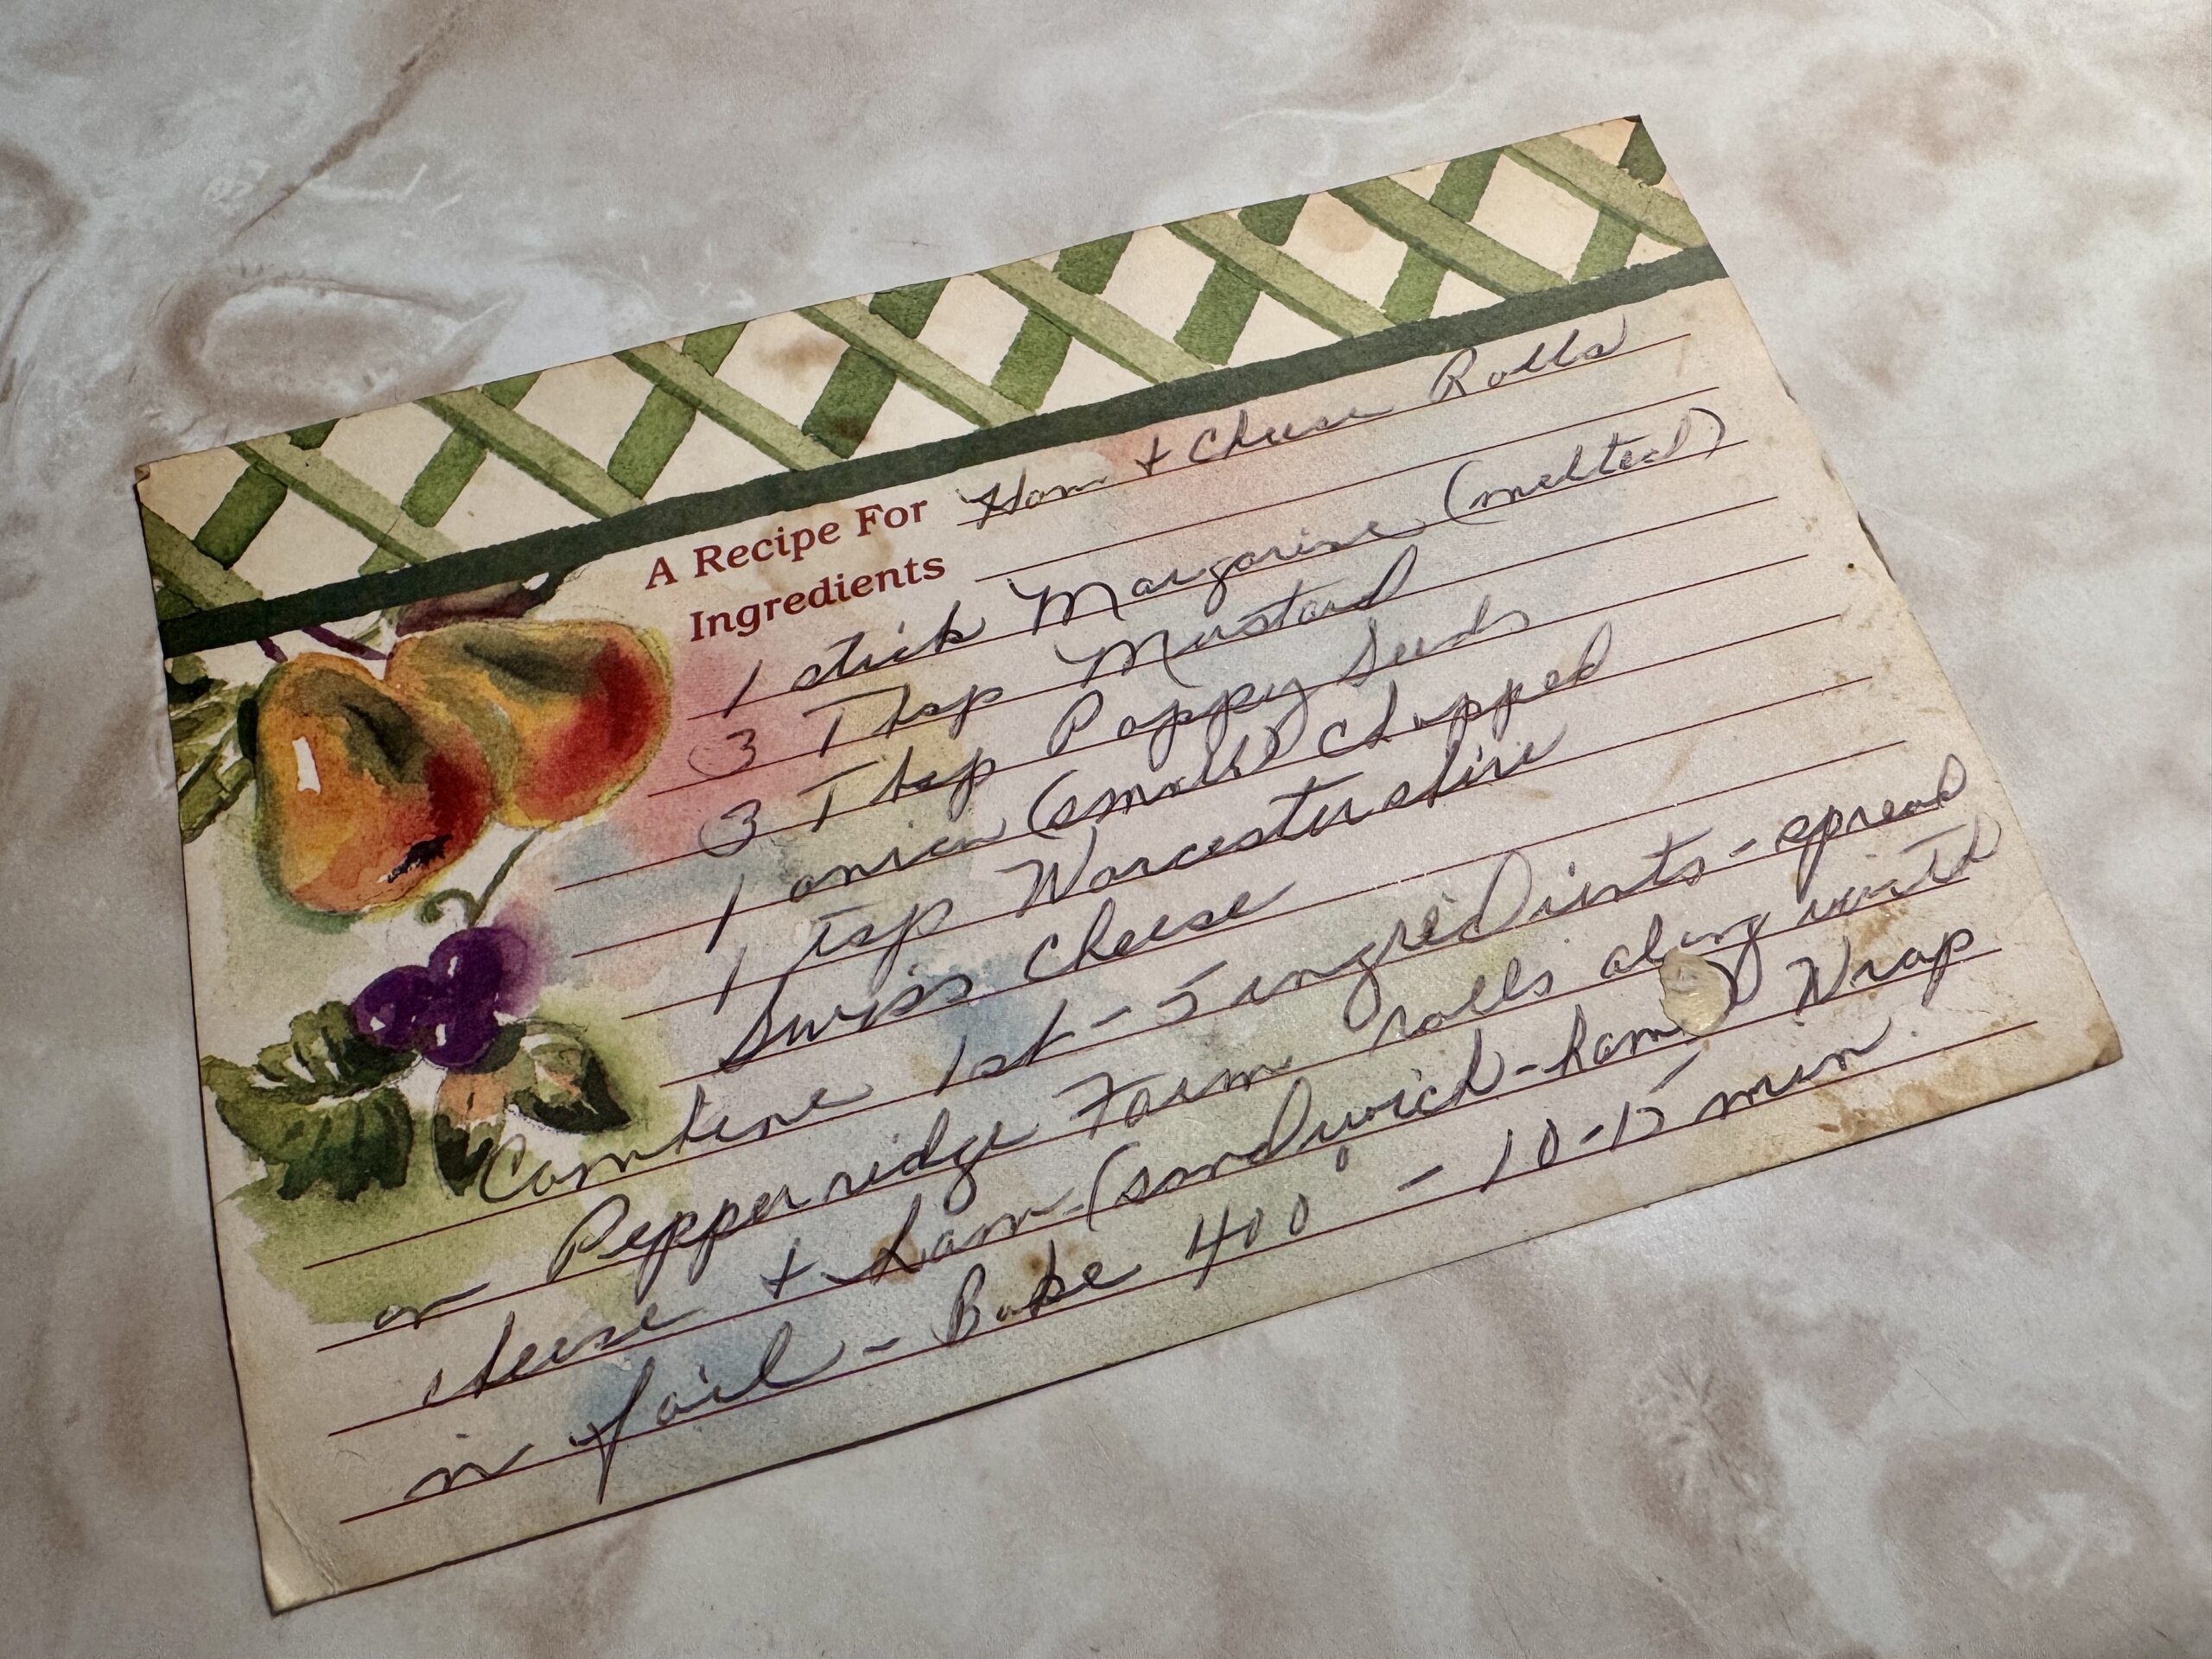 A Recipe For Ham + Cheese Rolls
Ingredients
1 stick Margarine (melted)
3 Tbsp Mustard
3 Tbsp Poppy Seeds
1 onion (small) chopped
1 tsp Worcestershire
Swiss Cheese
Combine 1st - 5 ingredients - spread
on Pepperridge Farm rolls along with
cheese + ham - (sandwich - ham) Wrap
in foil - Bake 400° - 10-15 min.